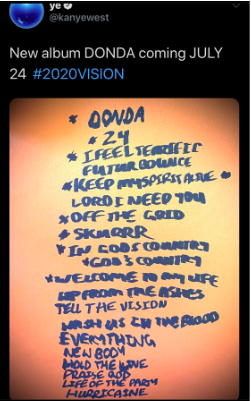 ye
@kanyewest
New album DONDA coming JULY
24 #2020VISION
* DONDA
* 24
* I FEEL TERRIFIC
FUTUR BOUNCE
* KEEP MY SPIRIT ALIVE *
LORD I NEED YOU
* OFF THE GRID
* SKURRR
* IN GODS COUNTRY
* GOD'S COUNTRY
* WELCOME TO MY LIFE
UP FROM THE ASHES
TELL THE VISION
WASH US IN THE BLOOD
EVERYTHING
NEW BODY
HOLD THE LINE
PRAISE GOD
LIFE OF THE PARTY
HURRICAINE